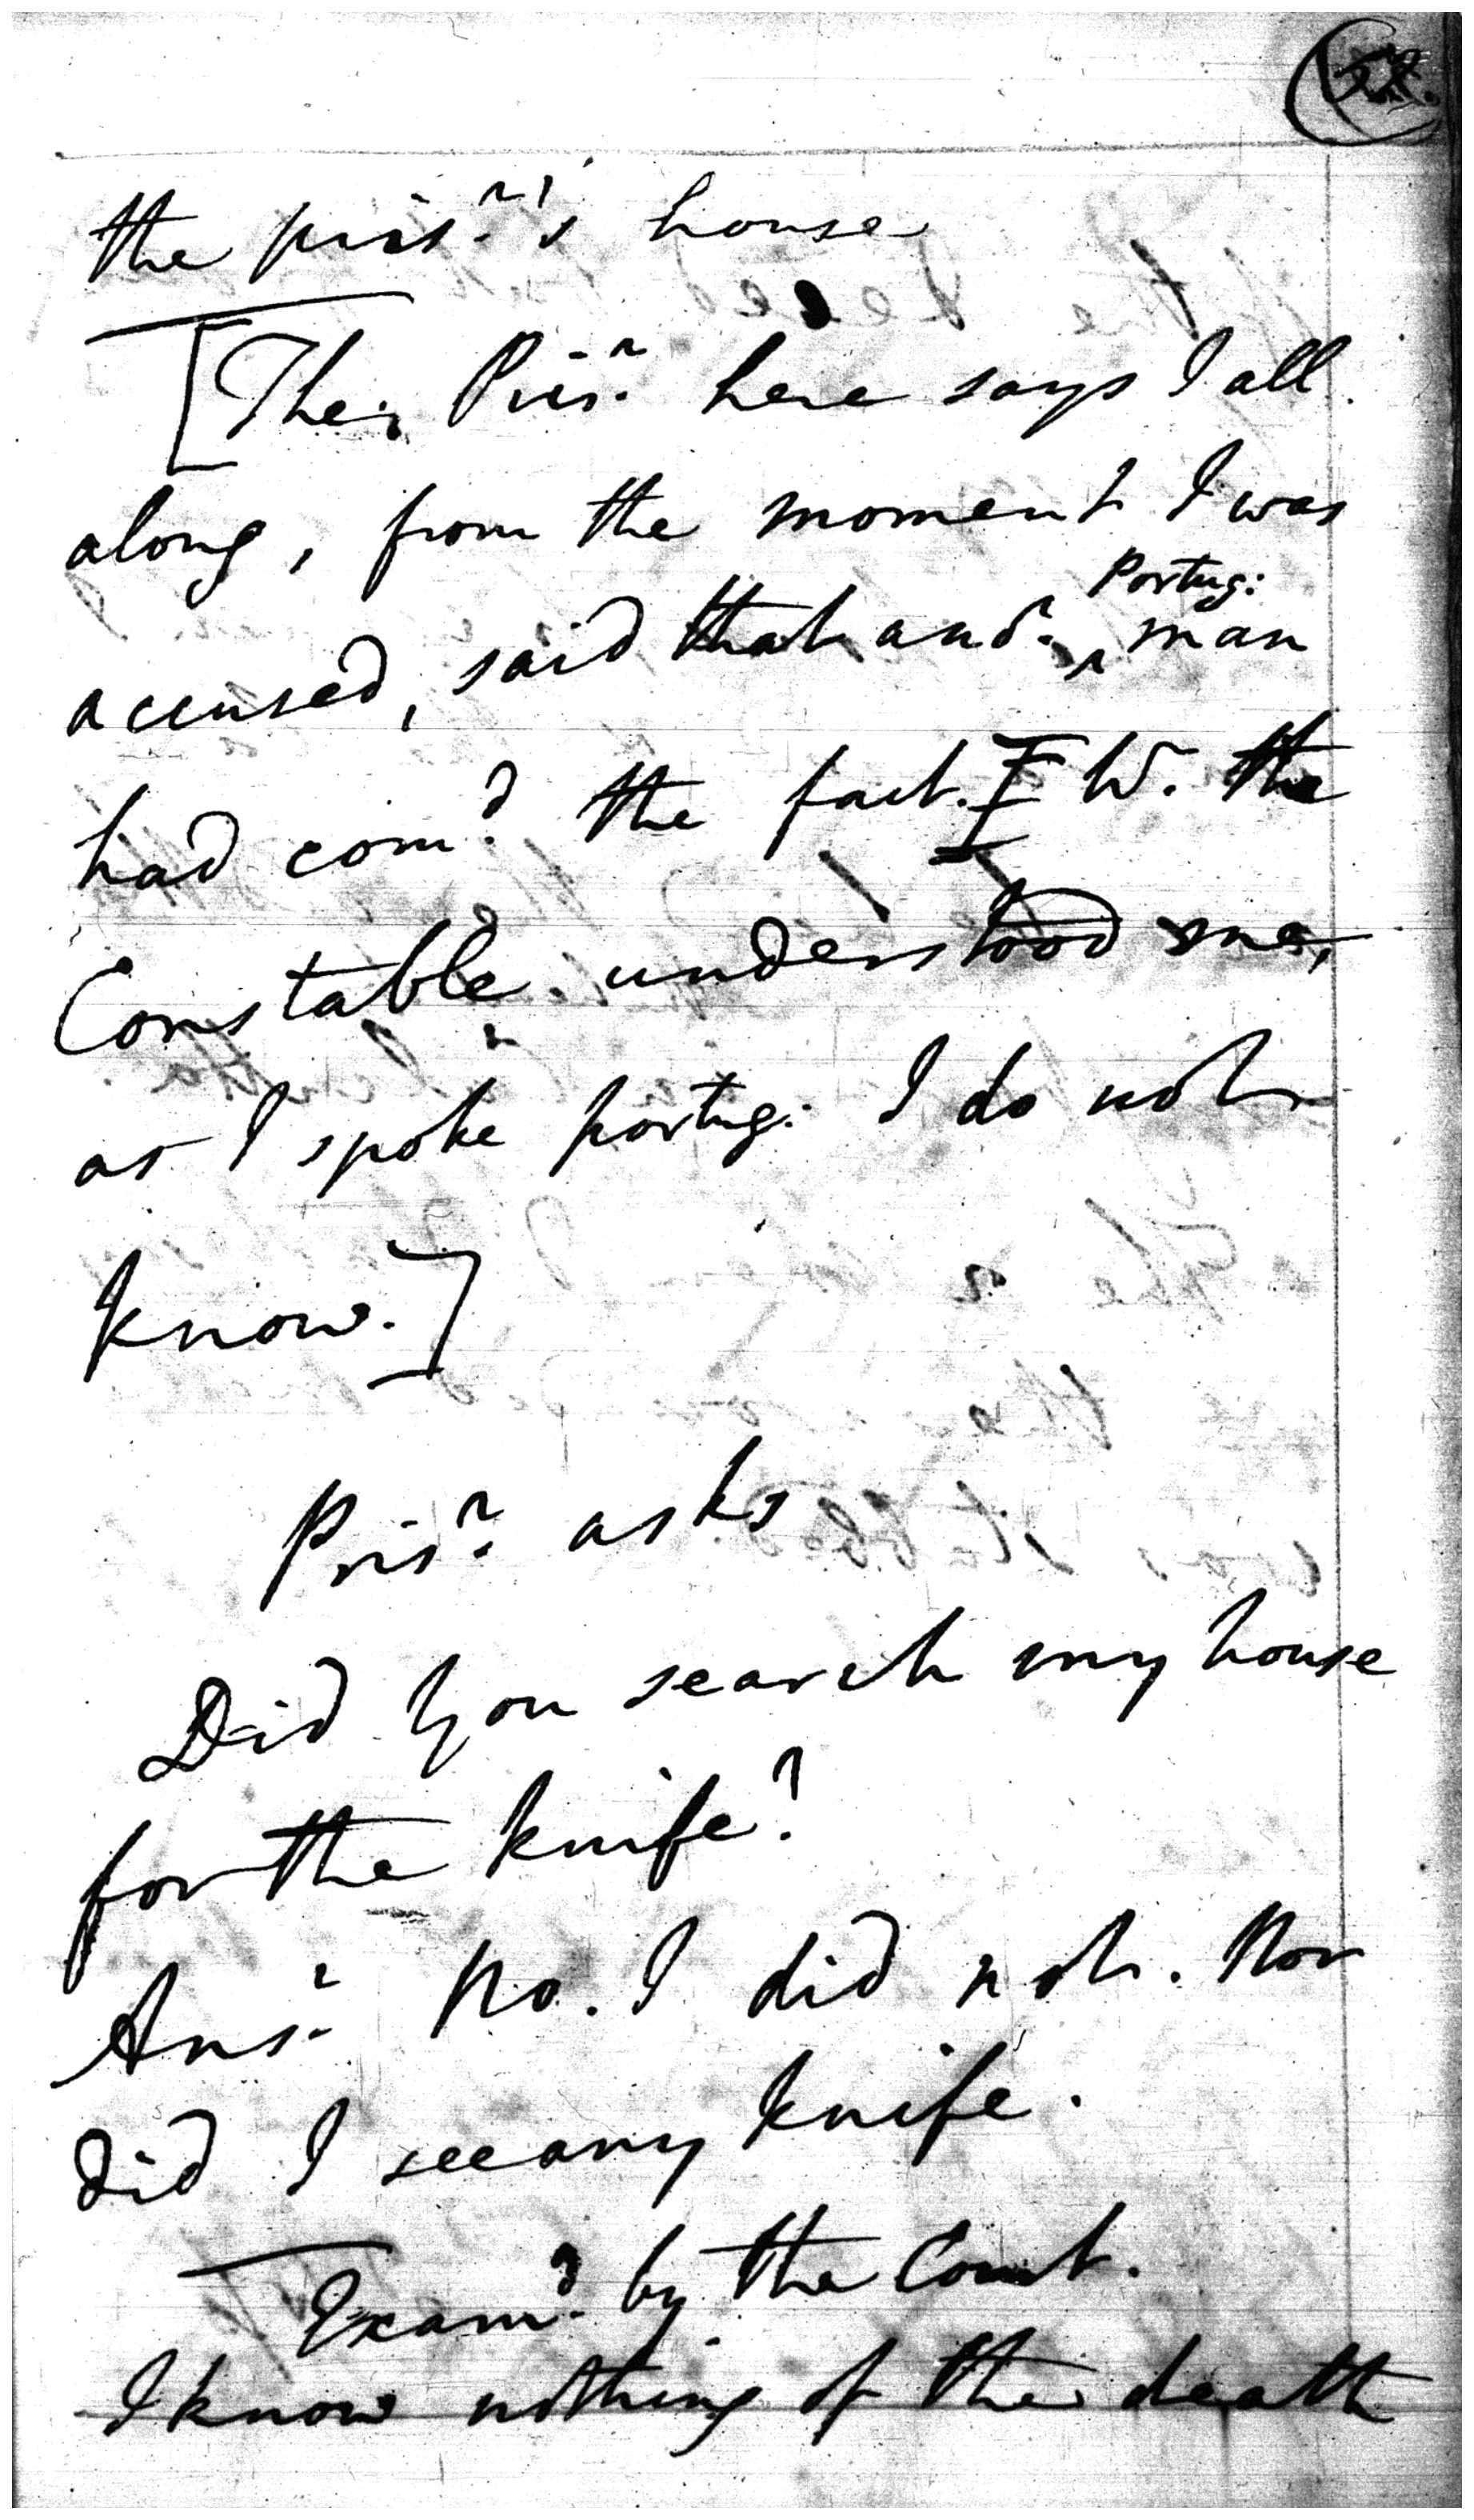 the pris.r's house
[The Pris.r here says I all
along, from the moment I was
Portug:
accused, said that ano.r ^ man
had com.d the fact. If W. the
Constable understood me,
as I spoke portug: I do not
know.]
Pris.r asks
Did you search my house
for the knife?
Ans.r No. I did not. Nor
did I see any knife.
Exam.d by the Court.
I know nothing of the death